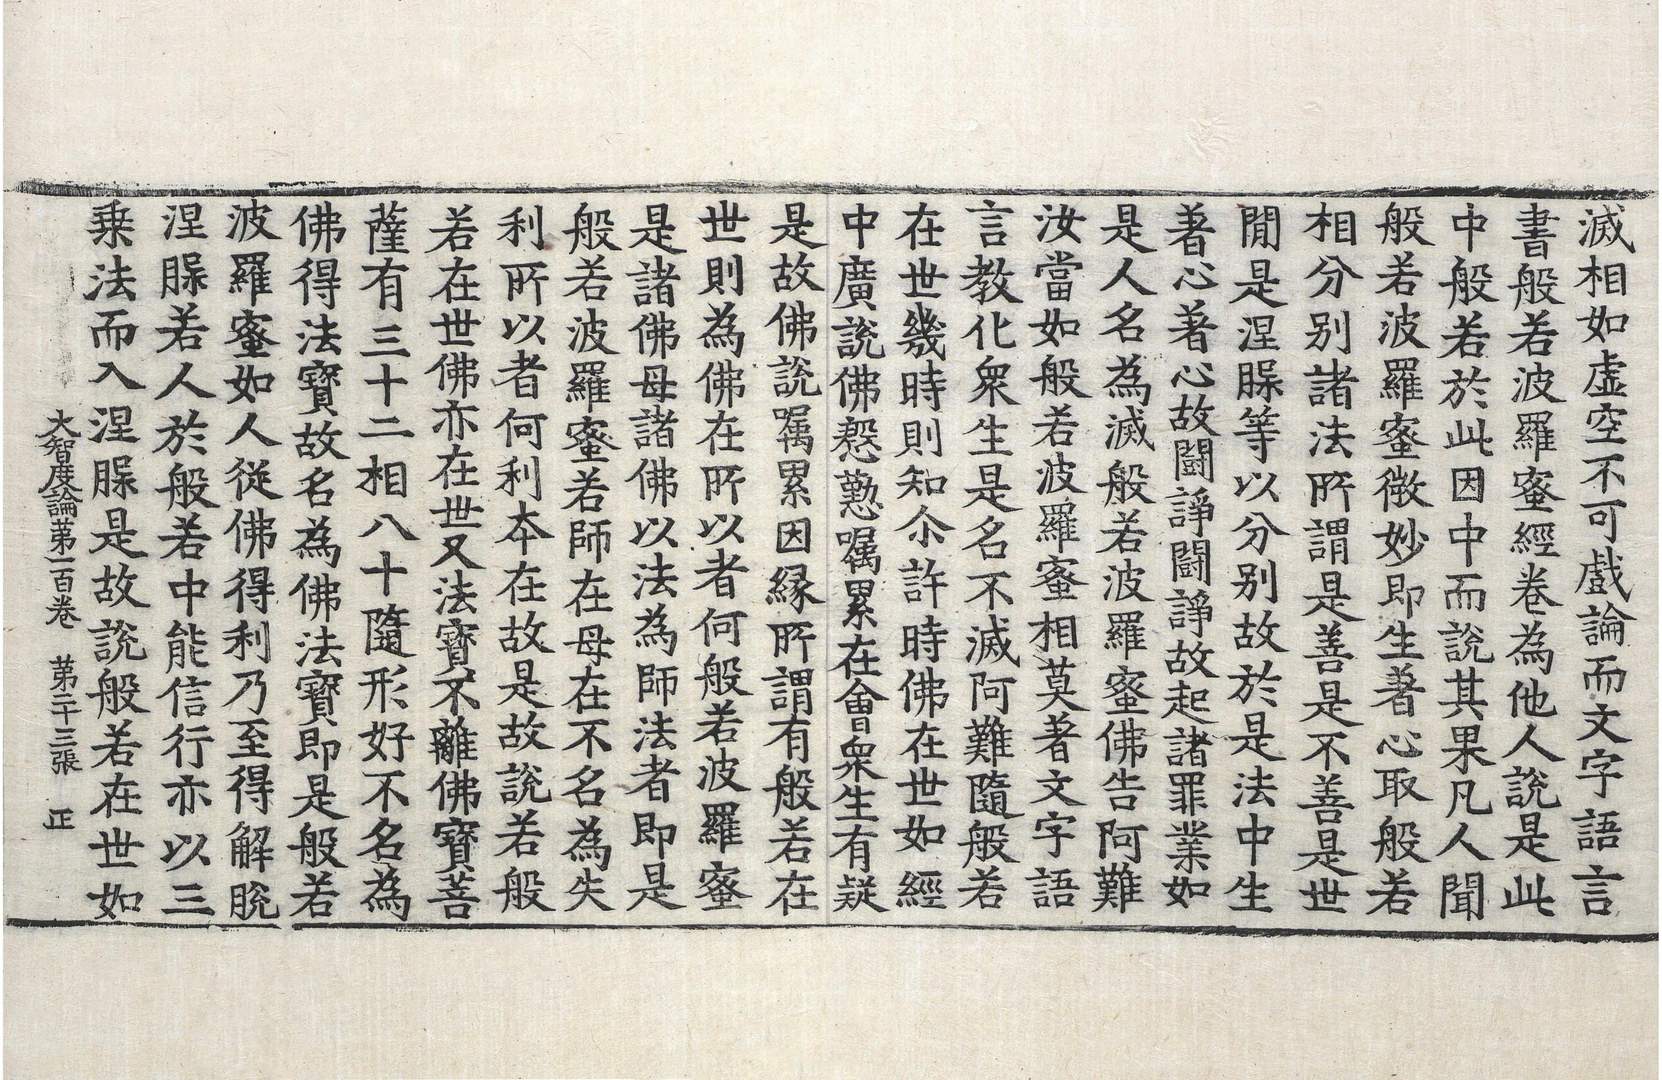 滅相如虛空不可戲論而文字語言
書般若波羅蜜經卷為他人說是此
中般若於此因中而說其果凡人聞
般若波羅蜜微妙即生著心取般若
相分别諸法所謂是善是不善是世
間是涅槃等以分别故於是法中生
著心著心故鬪諍鬪諍故起諸罪業如
是人名為滅般若波羅蜜佛告阿難
汝當如般若波羅蜜相莫著文字語
言教化衆生是名不滅阿難隨般若
在世幾時則知尒許時佛在世如經
中廣說佛慇懃囑累在會衆生有疑
是故佛說囑累因緣所謂有般若在
世則為佛在所以者何般若波羅蜜
是諸佛母諸佛以法為師法者即是
般若波羅蜜若師在母在不名為失
利所以者何利本在故是故說若般
若在世佛亦在世又法寶不離佛寶菩
薩有三十二相八十隨形好不名為
佛得法寶故名為佛法寶即是般若
波羅蜜如人從佛得利乃至得解脫
涅槃若人於般若中能信行亦以三
乗法而入涅槃是故說般若在世如
大智度論第一百卷　第二十三張　正